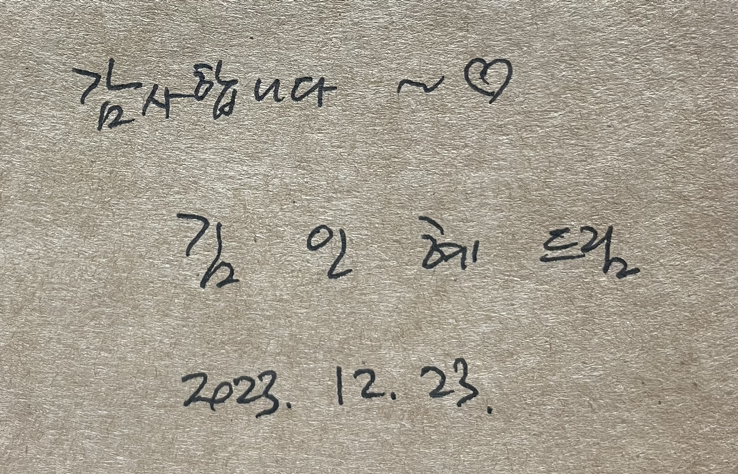 감사합니다 ~♡
김 인 혜 드림
2023. 12. 23.